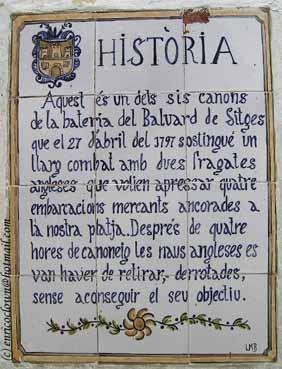 HISTÒRIA
Aquest és un dels sis canons
de la bateria del Baluard de Sitges
que el 27 d'abril del 1797 sostingué un
llarg combat amb dues fragates
angleses que volien apressar quatre
embarcacions mercants ancorades a
la nostra platja. Després de quatre
hores de canoneig les naus angleses es
van haver de retirar, derrotades,
sense aconseguir el seu objectiu.
LMB
(c) enricodown@hotmail.com